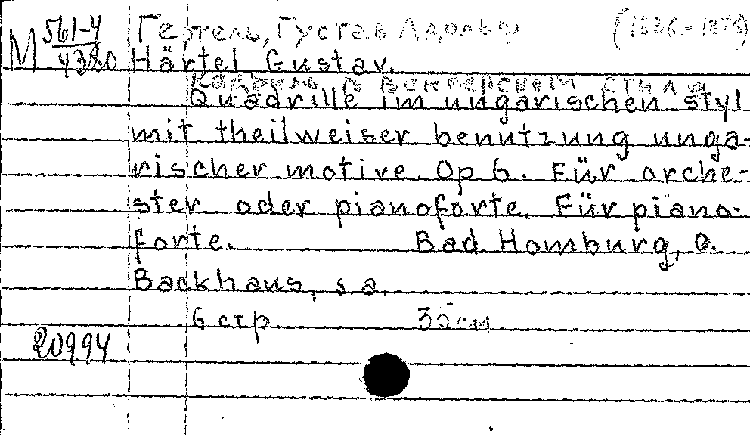 M 561-4
4380
Гертель, Густав Адольф (1836-1876)
Härtel Gustav.
Кадриль в венгерском стиле
Quadrille im ungarischen styl
mit theilweiser benutzung unga-
rischer motive. Op 6. Für orche-
ster oder pianoforte. Für piano-
forte. Bad Homburg, O.
Backhaus, s a.
6 стр. 35 см
20994